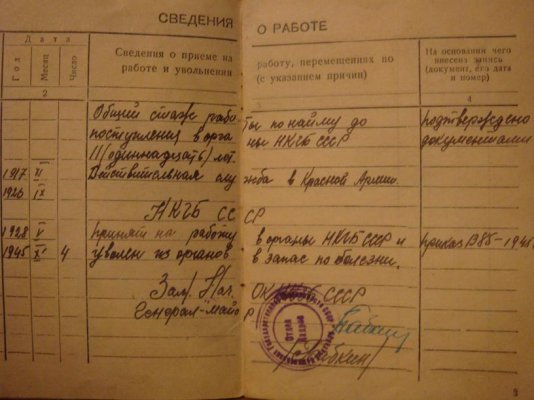 СВЕДЕНИЯ О РАБОТЕ
Дата
Год Месяц Число
Сведения о приеме на работу, перемещениях по
работе и увольнении (с указанием причин)
На основании чего
внесена запись
(документ, его дата
и номер)
2 4
Общий стаж работы по найму до подтверждено
поступления в органы НКГБ СССР документами
11 (одиннадцать) лет.
1917 Действительная служба в Красной Армии.
1926 IX
НКГБ СССР
1928 V принят на работу в органы НКГБ СССР и
1945 XI 4 уволен из органов в запас по болезни. приказ 1385-1945
Зам. Нач. ОК НКГБ СССР
Генерал-майор
Отдел
кадров
9